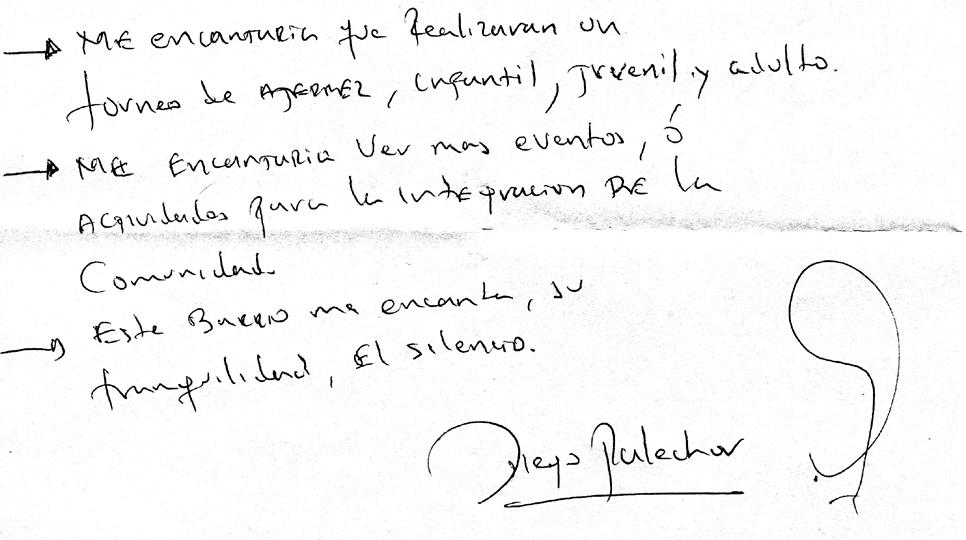 → ME encantaria que Realizaran un
torneo de AJEDREZ, infantil, juvenil y adulto.
→ ME Encantaria Ver mas eventos, ó
Actividades para la integracion DE la
Comunidad.
→ Este Barrio me encanta, su
tranquilidad, El silencio.
Diego